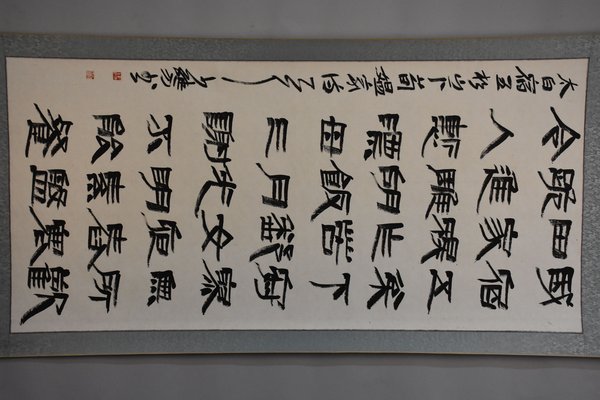 我宿五松下寂寥無所歡
田家秋作苦鄰女夜舂寒
跪進雕胡飯月光明素盤
令人慙漂母三謝不能餐
太白宿五松山下荀媼家詩